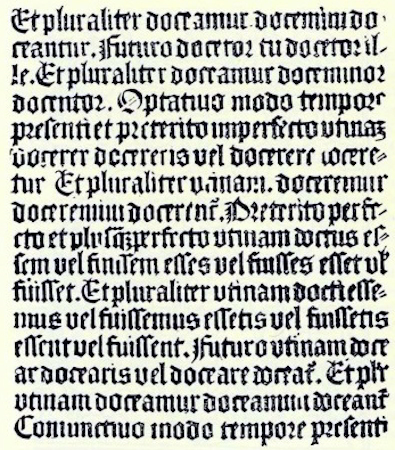 Et pluraliter doceamur doceminī do
ceantur. Futuro docetor tu docetor il-
le. Et pluraliter doceamur doceminor
docentor. Optatiuo modo tempore
presenti et preterito imperfecto vtinaʒ
docerer docereris vel docerere docere-
tur Et pluraliter vtinam. doceremur
doceremini docerent᷑. Preterito perfe-
cto et plusqʒperfecto vtinam doctus es-
sem vel fuissem esses vel fuisses esset vl̛
fuisset. Et pluraliter vtinam docti esse-
mus vel fuissemus essetis vel fuissetis
essent vel fuissent. Futuro vtinam doce
ar docearis vel doceare doceat᷑. Et plr̛
vtinam doceamur doceamini doceant᷑
Coniunctiuo modo tempore presenti